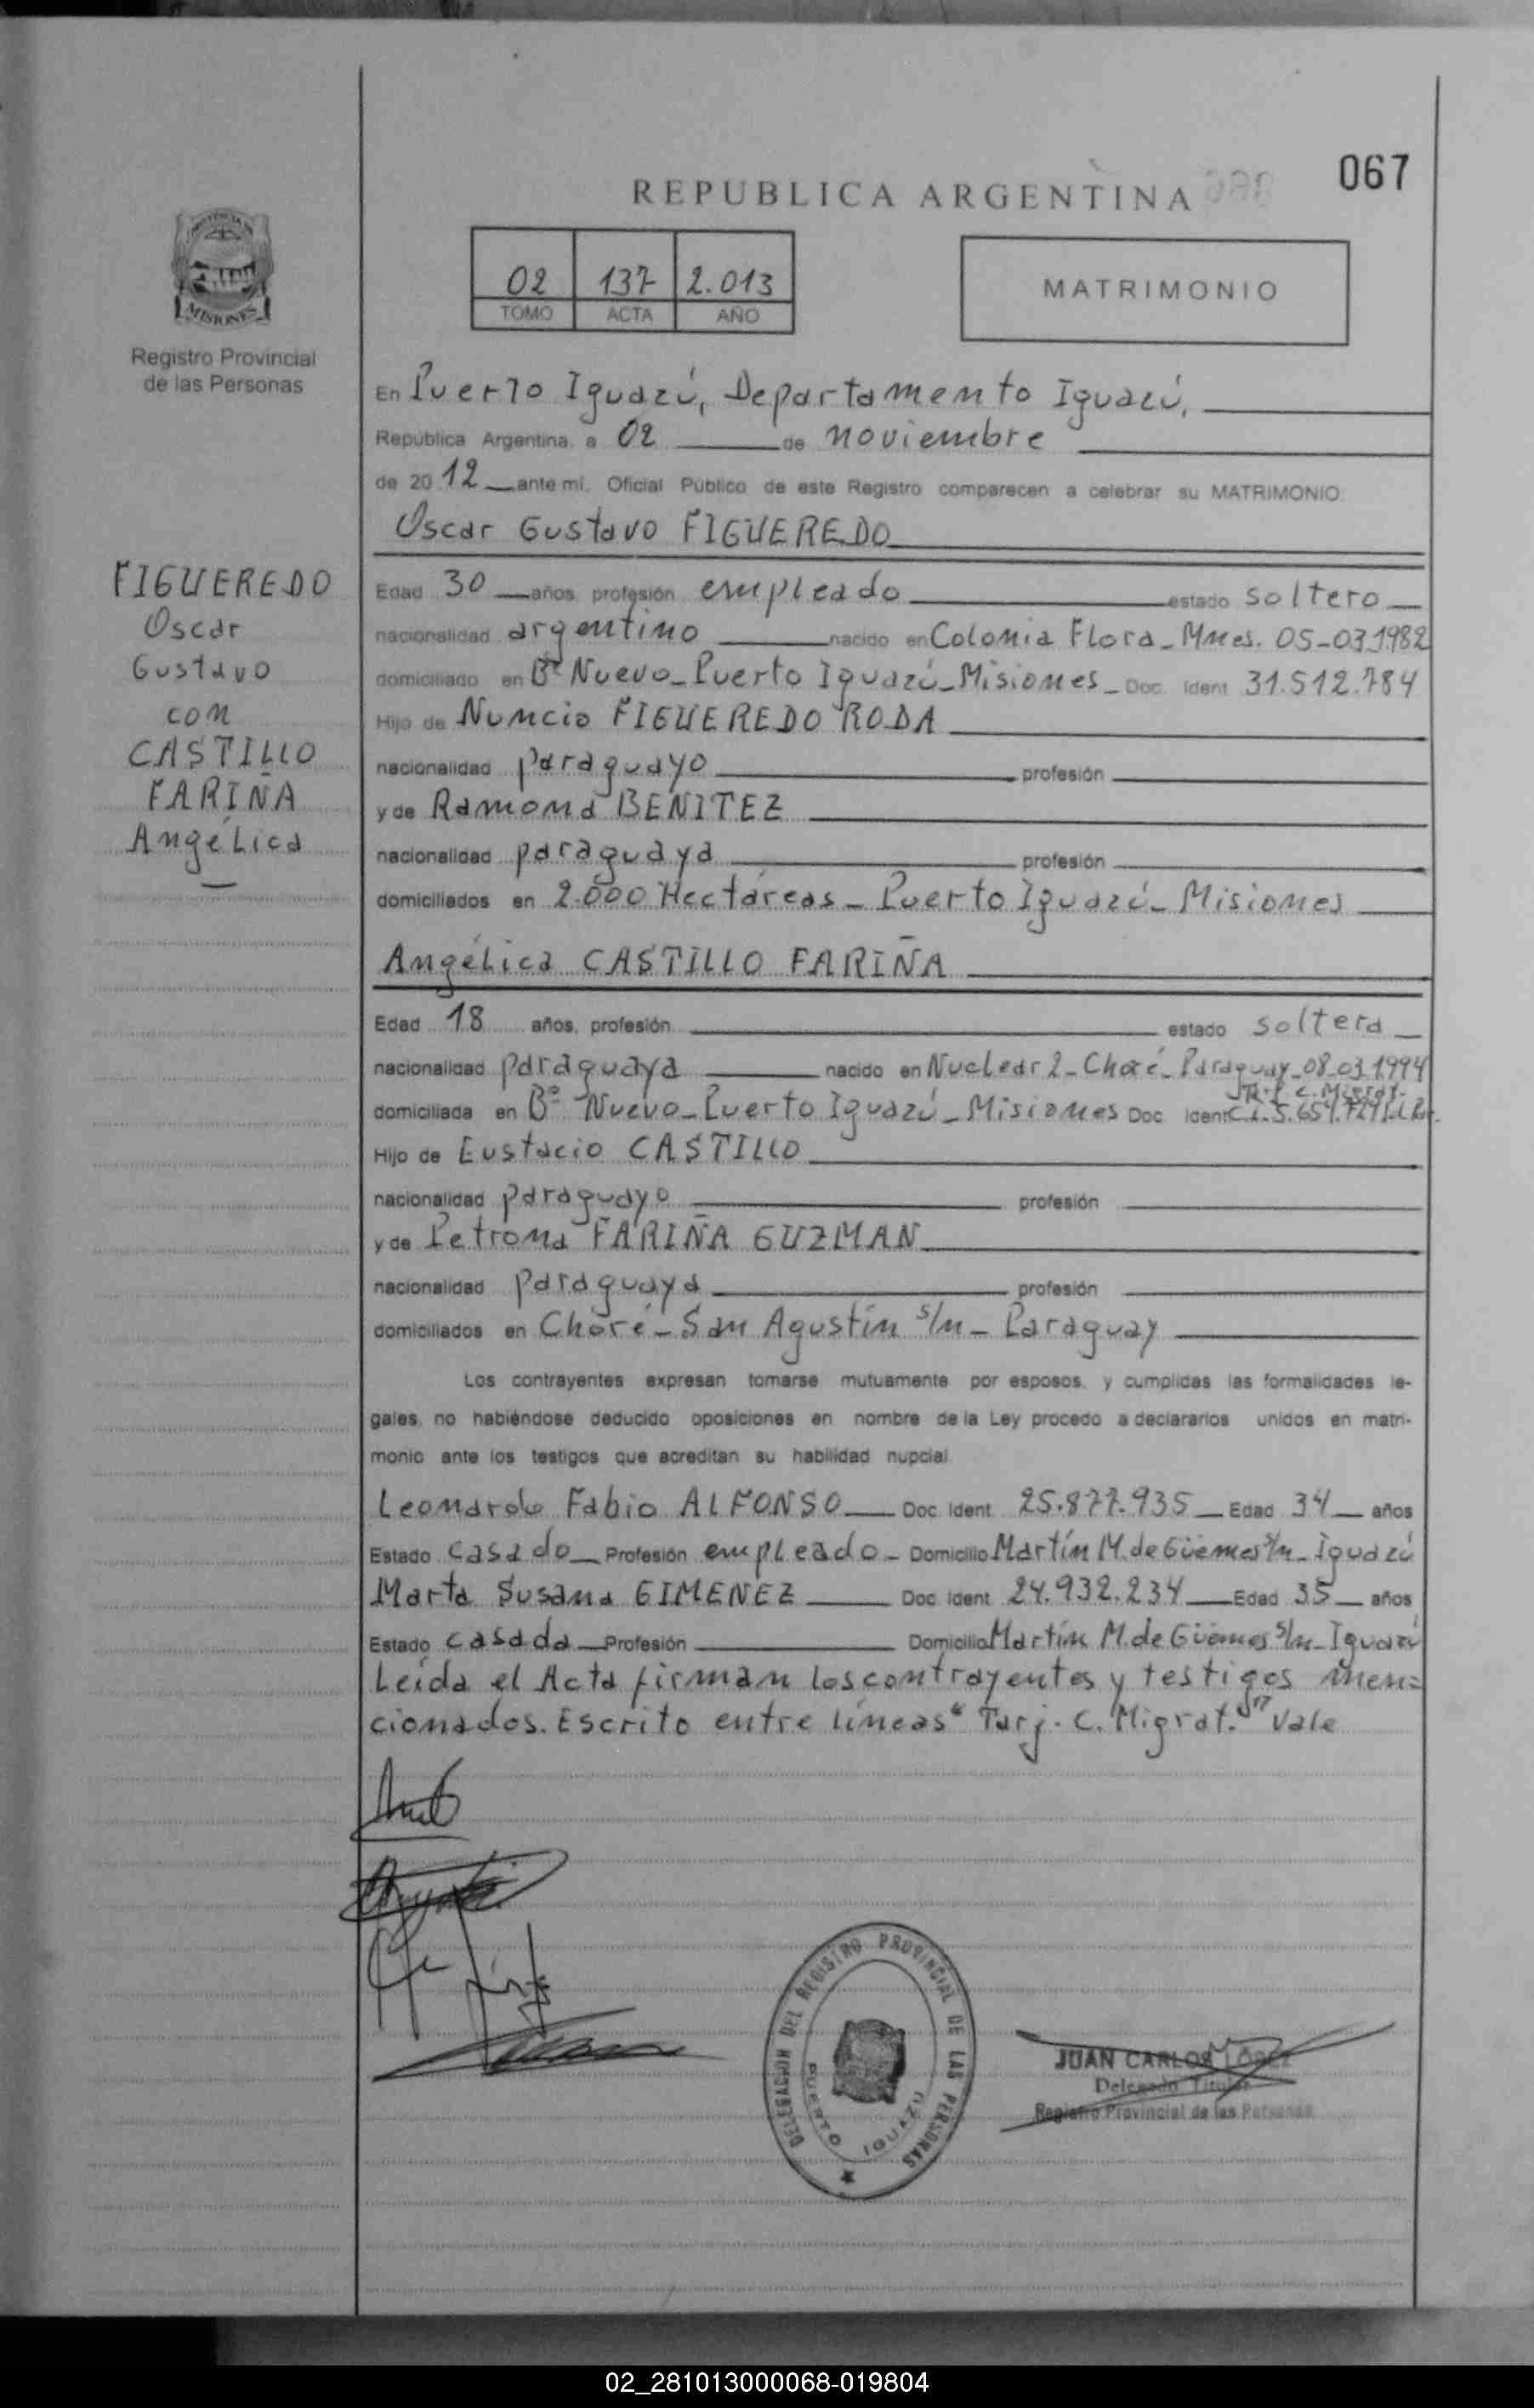 067
REPUBLICA ARGENTINA
02 137 2.013
TOMO ACTA AÑO
MATRIMONIO
MISIONES
Registro Provincial
de las Personas
FIGUEREDO
Oscar
Gustavo
con
CASTILLO
FARIÑA
Angélica
En Puerto Iguazú, Departamento Iguazú,
Republica Argentina, a 02 de noviembre
de 2012 ante mi, Oficial Público de este Registro comparecen a celebrar su MATRIMONIO:
Oscar Gustavo FIGUEREDO
Edad 30 años, profesión empleado estado soltero
nacionalidad argentino nacido en Colonia Flora - Mnes. 05-03-1982
domiciliado en Bº Nuevo - Puerto Iguazú - Misiones - Doc. Ident 31.512.784
Hijo de Nuncio FIGUEREDO RODA
nacionalidad paraguayo profesión
y de Ramona BENITEZ
nacionalidad paraguaya profesión
domiciliados en 2.000 Hectáreas - Puerto Iguazú - Misiones
Angélica CASTILLO FARIÑA
Edad 18 años, profesión estado soltera
nacionalidad paraguaya nacido en Nuclear 2 - Choré - Paraguay - 08-03-1994
domiciliada en Bº Nuevo - Puerto Iguazú - Misiones Doc. Ident C.I. 5.654.
Hijo de Eustacio CASTILLO
nacionalidad paraguayo profesión
y de Petrona FARIÑA GUZMAN
nacionalidad paraguaya profesión
domiciliados en Choré - San Agustín s/n - Paraguay
Los contrayentes expresan tomarse mutuamente por esposos, y cumplidas las formalidades le-
gales, no habiéndose deducido oposiciones en nombre de la Ley procedo a declararlos unidos en matri-
monio ante los testigos que acreditan su habilidad nupcial.
Leonardo Fabio ALFONSO Doc. Ident. 25.877.935 Edad 34 años
Estado casado Profesión empleado - Domicilio Martín M. de Güemes s/n - Iguazú
Marta Susana GIMENEZ Doc. Ident. 24.932.234 Edad 35 años
Estado casada Profesión Domicilio Martín M. de Güemes s/n - Iguazú
Leída el Acta firman los contrayentes y testigos men=
cionados. Escrito entre líneas "Tarj. C. Migrat." Vale
DELEGACION DEL REGISTRO PROVINCIAL DE LAS PERSONAS
PUERTO IGUAZU
JUAN CARLOS LÓPEZ
Delegado Titular
Registro Provincial de las Personas
02_281013000068-019804